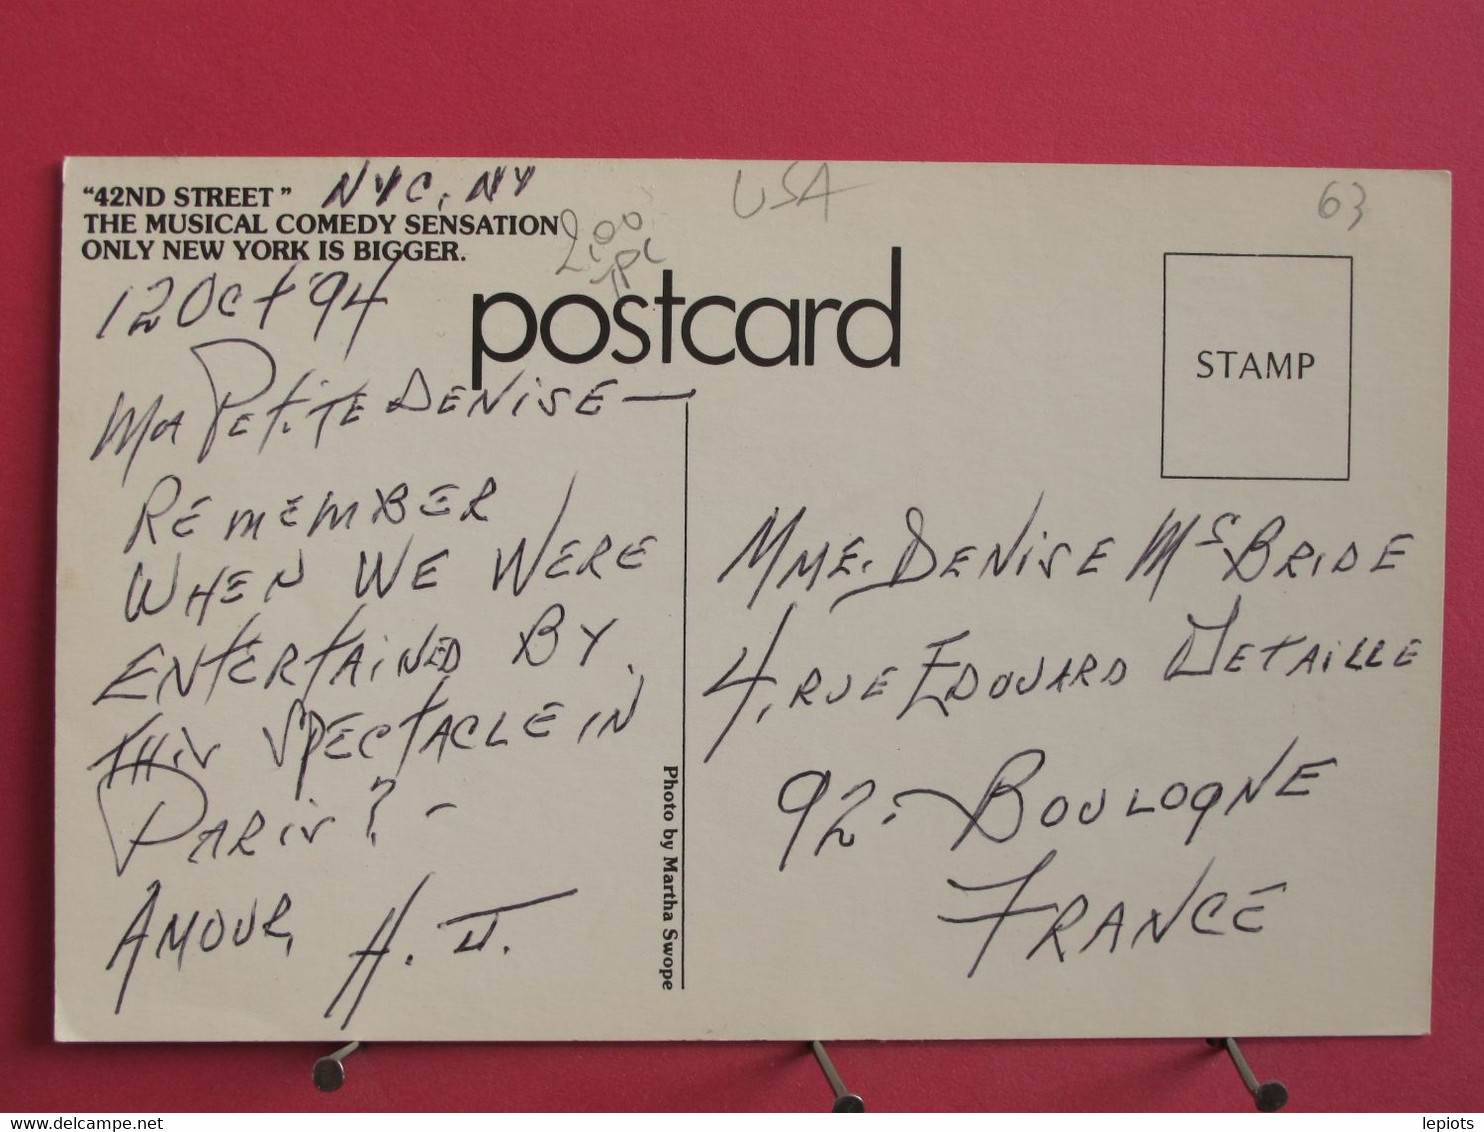 "42ND STREET" NYC, NY
THE MUSICAL COMEDY SENSATION
ONLY NEW YORK IS BIGGER.
USA
63
2,00
postcard
STAMP
12 Oct '94
MA PETITE DENISE —
REMEMBER
WHEN WE WERE
ENTERTAINED BY
THIS SPECTACLE IN
PARIS? –
AMOUR,
H. J.
Photo by Martha Swope
MME. DENISE McBRIDE
4, RUE EDOUARD DETAILLE
92 - BOULOGNE
FRANCE
delcampe.net
lepiots